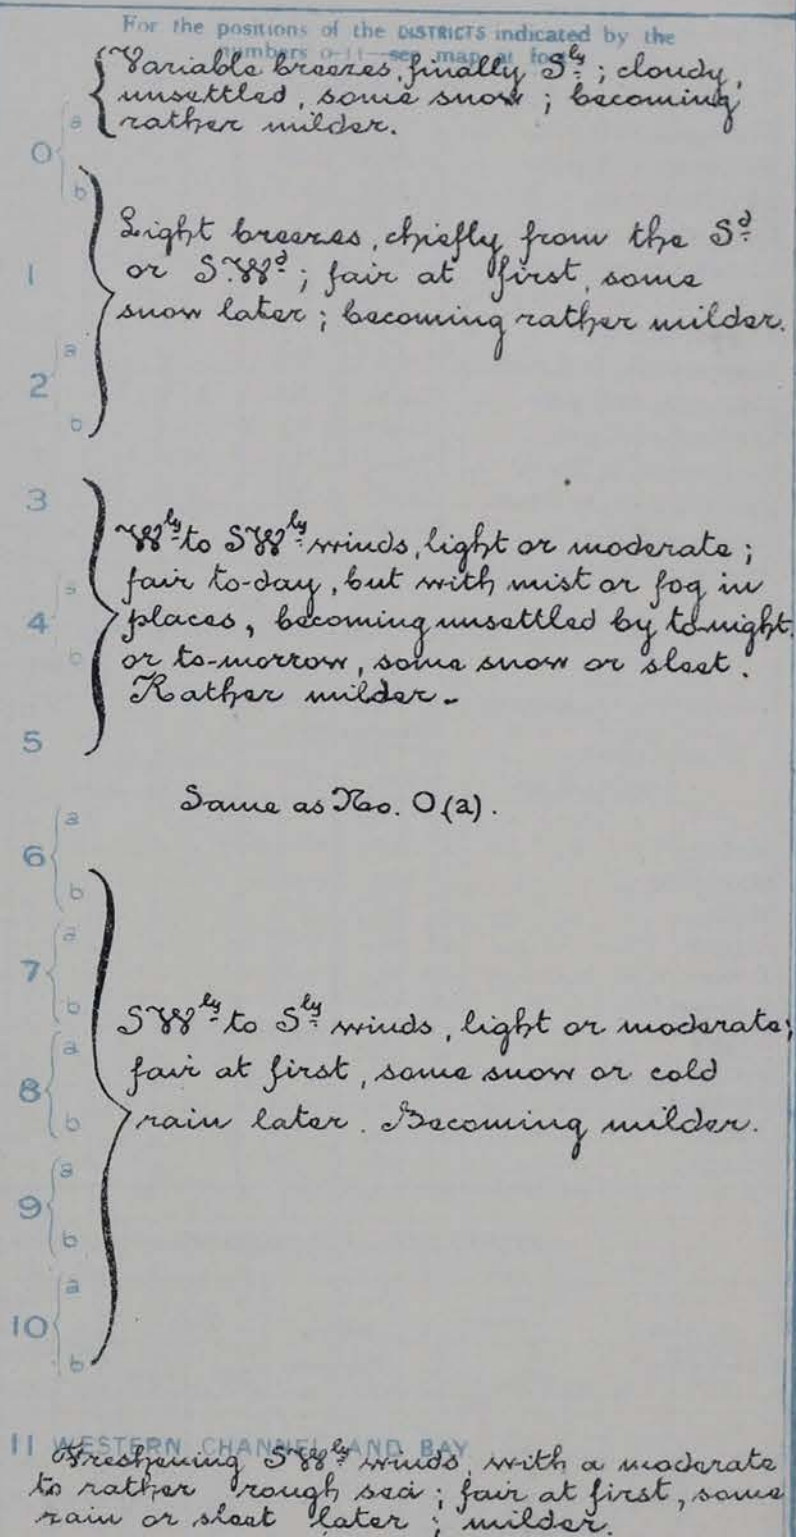 For the positions of the DISTRICTS indicated by the
numbers 0-11—see map at foot
Variable breezes, finally Sly; cloudy,
unsettled, some snow; becoming
rather milder.
0 a
b
Light breezes, chiefly from the Sd
1 or S.Wd; fair at first, some
snow later; becoming rather milder.
2 a
b
3
Wly to SWly winds, light or moderate;
a fair to-day, but with mist or fog in
4 places, becoming unsettled by to-night
b or to-morrow, some snow or sleet.
Rather milder.
5
Same as No. 0(a).
6 a
b
7 a
b
SWly to Sly winds, light or moderate;
8 a fair at first, some snow or cold
b rain later. Becoming milder.
9 a
b
10 a
b
11 WESTERN CHANNEL AND BAY
Freshening SWly winds, with a moderate
to rather rough sea; fair at first, some
rain or sleet later; milder.